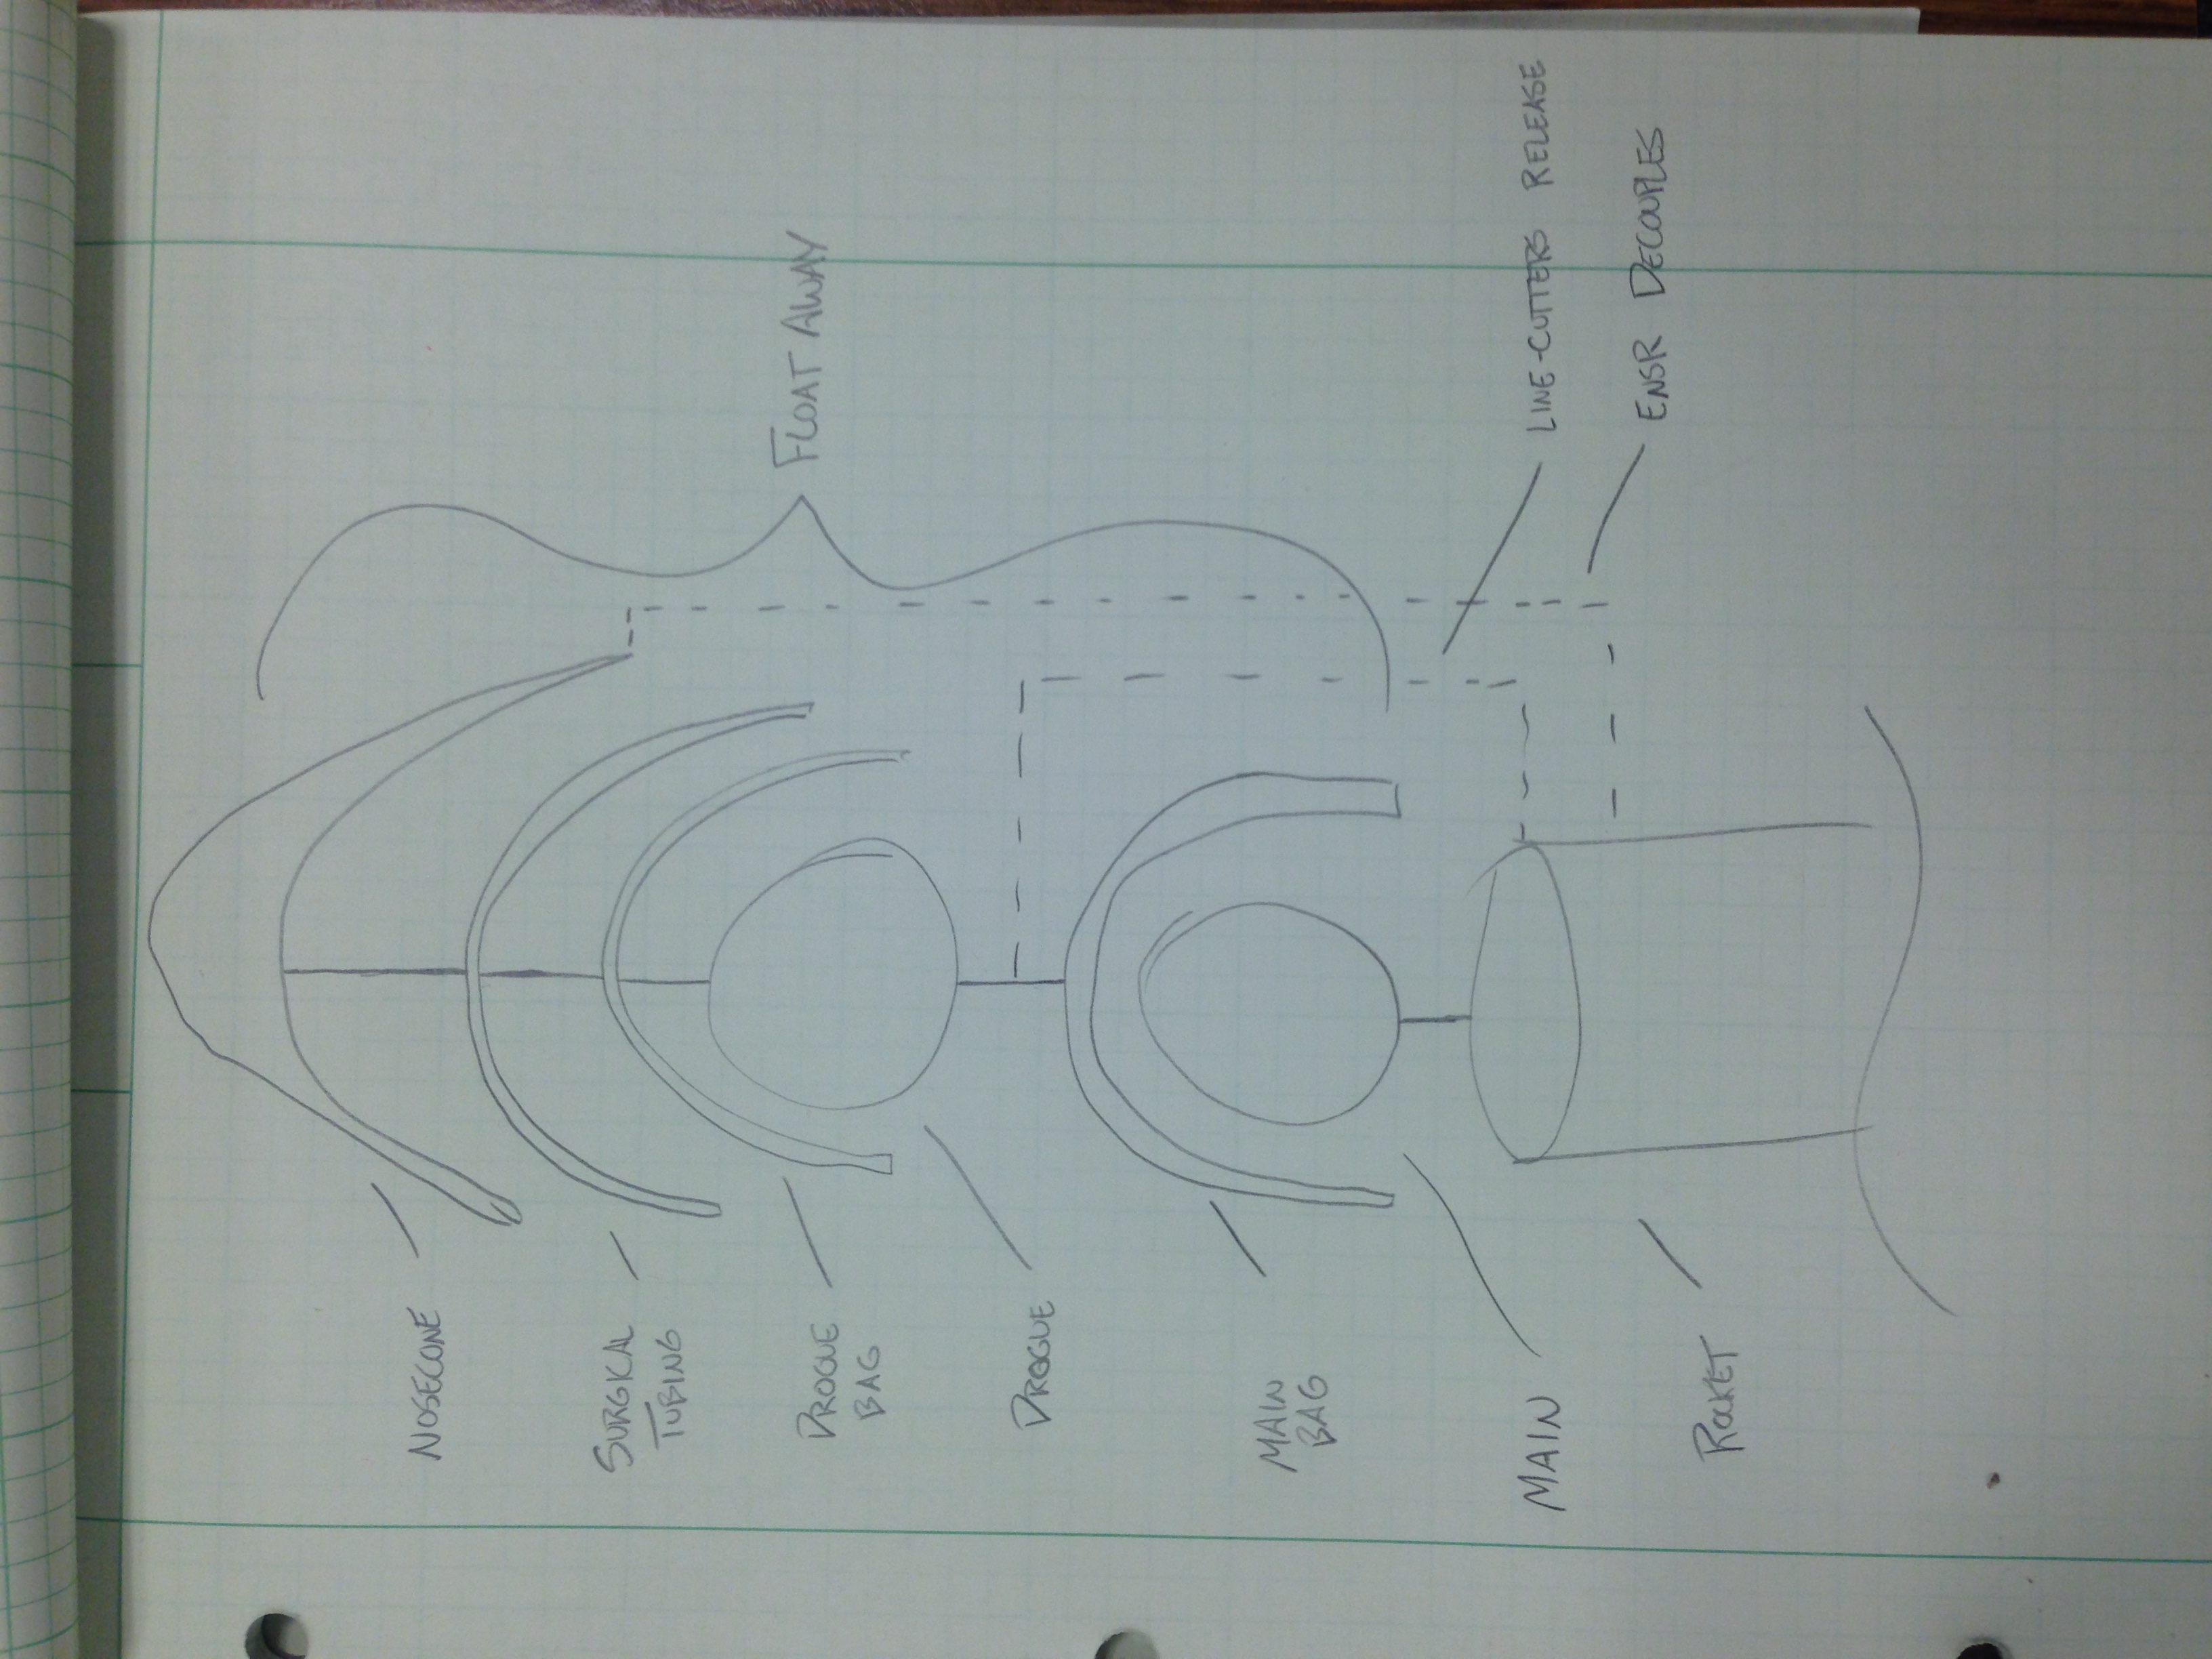 NOSECONE
SURGICAL
TUBING
DROGUE
BAG
DROGUE
MAIN
BAG
MAIN
ROCKET
FLOAT AWAY
LINE-CUTTERS RELEASE
ENSR DECOUPLES